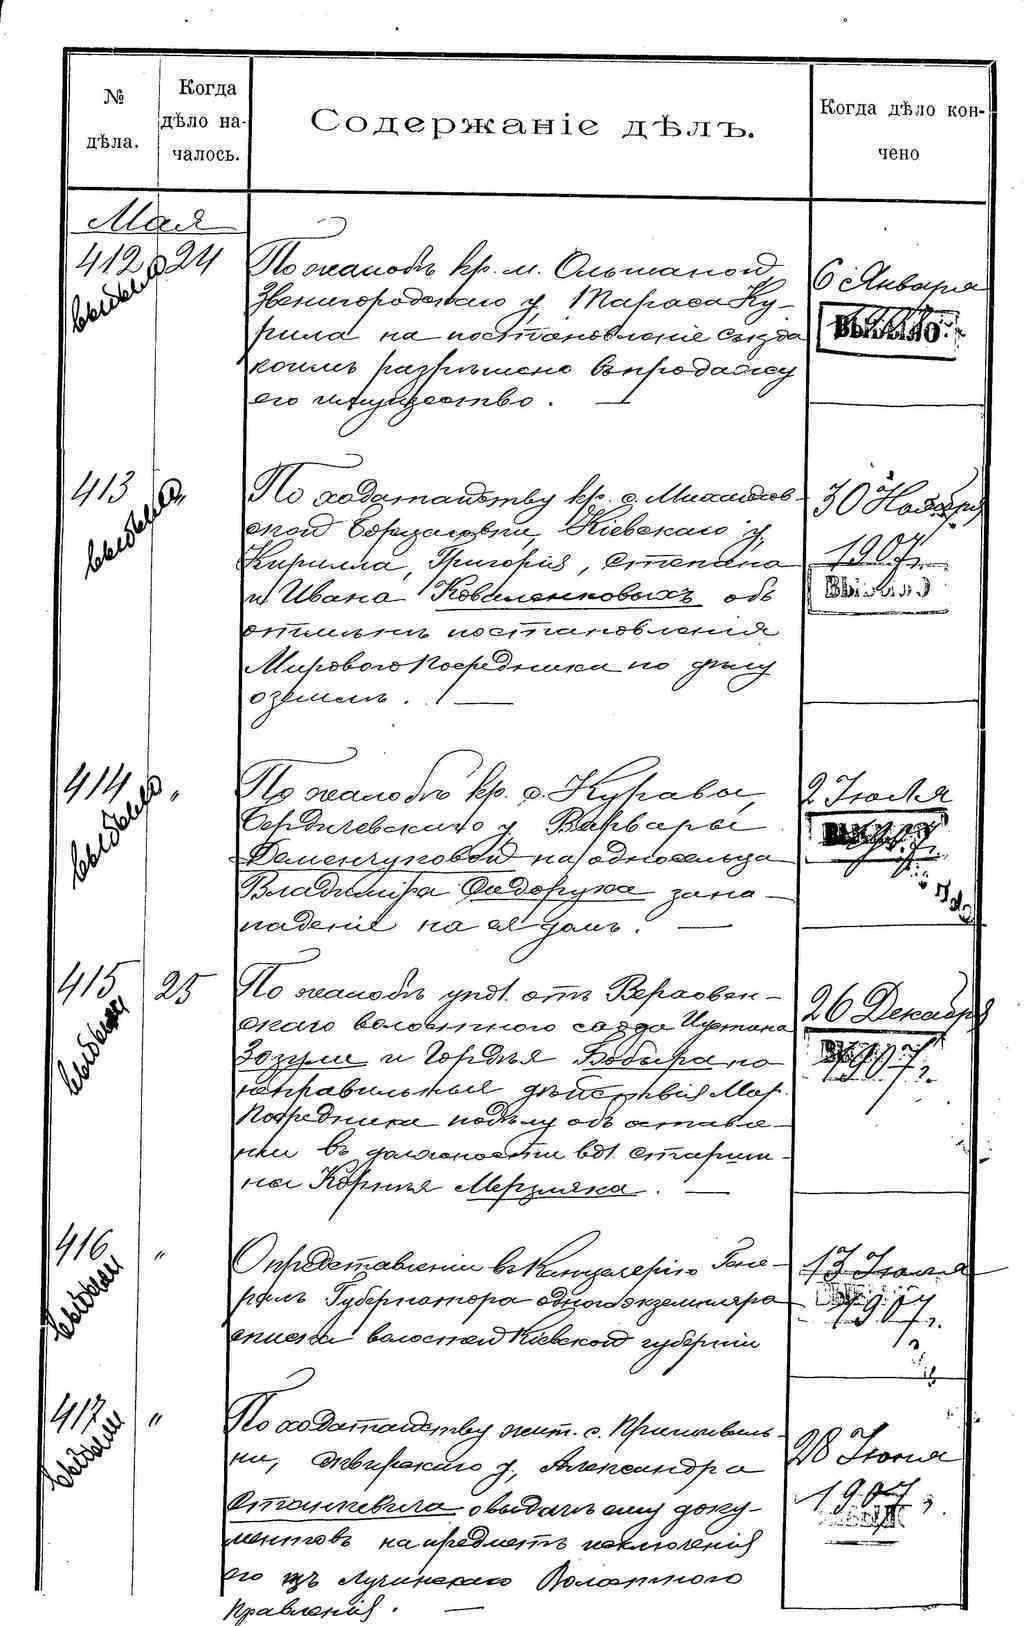 № дѣла.
Когда дѣло на-
чалось.
Содержаніе дѣлъ.
Когда дѣло кон-
чено
Мая
412 24
выбыло
По жалобѣ кр. м. Ольшаной
Звенигородскаго у, Тараса Ку-
рила на постановленіе съѣзда
коимъ разрѣшено въ продажу
его имущество. —
6 Января
ВЫБЫЛО
413 "
выбыло
По ходатайству кр. с. Михайлов-
ской Борщаговки, Кіевскаго у,
Кирилла, Григорія, Степана
и Ивана Коваленковыхъ объ
отмѣнѣ постановленія
Мирового Посредника по дѣлу
о землѣ. —
30 Ноября
1907г.
ВЫБЫЛО
414 "
выбыло
По жалобѣ кр. с. Куравы,
Бердичевскаго у, Варвары
Деменчуковой на односельца
Владиміра Сидорука за на-
паденіе на ея домъ. —
2 Іюля
1907г.
415 25
выбыли
По жалобѣ упл. отъ Верховен-
скаго волостного схода Иустина
Зозули и Гордѣя Бобыра на
неправильныя дѣйствія Мир.
Посредника по дѣлу объ оставле-
ніи въ должности вол. старши-
ны Корнѣя Мерзляка. —
26 Декабря
1907г.
416 "
выбыли
О представленіи въ Канцелярію Гене-
ралъ Губернатора одного экземпляра
списка волостей Кіевской губерніи
13 Іюля
1907г.
417 "
выбыли
По ходатайству жит. с.
ни, Сквирскаго у, Александра
Станкевича о выдачѣ ему доку-
ментовъ на предметъ исключенія
его изъ Лучинскаго Волостного
Правленія. —
28 Іюня
1907г.